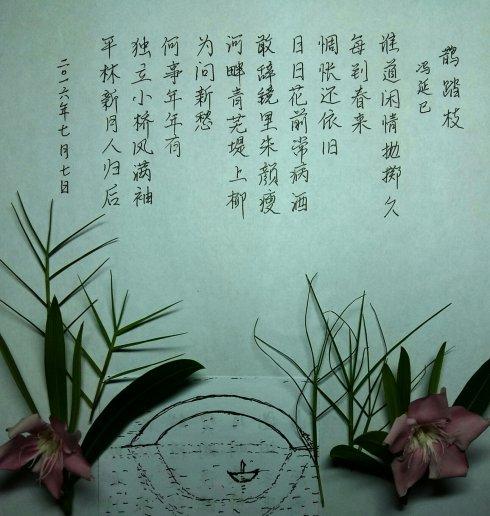 鹊踏枝
冯延巳
谁道闲情抛掷久
每到春来
惆怅还依旧
日日花前常病酒
敢辞镜里朱颜瘦
河畔青芜堤上柳
为问新愁
何事年年有
独立小桥风满袖
平林新月人归后
二〇一六年七月七日